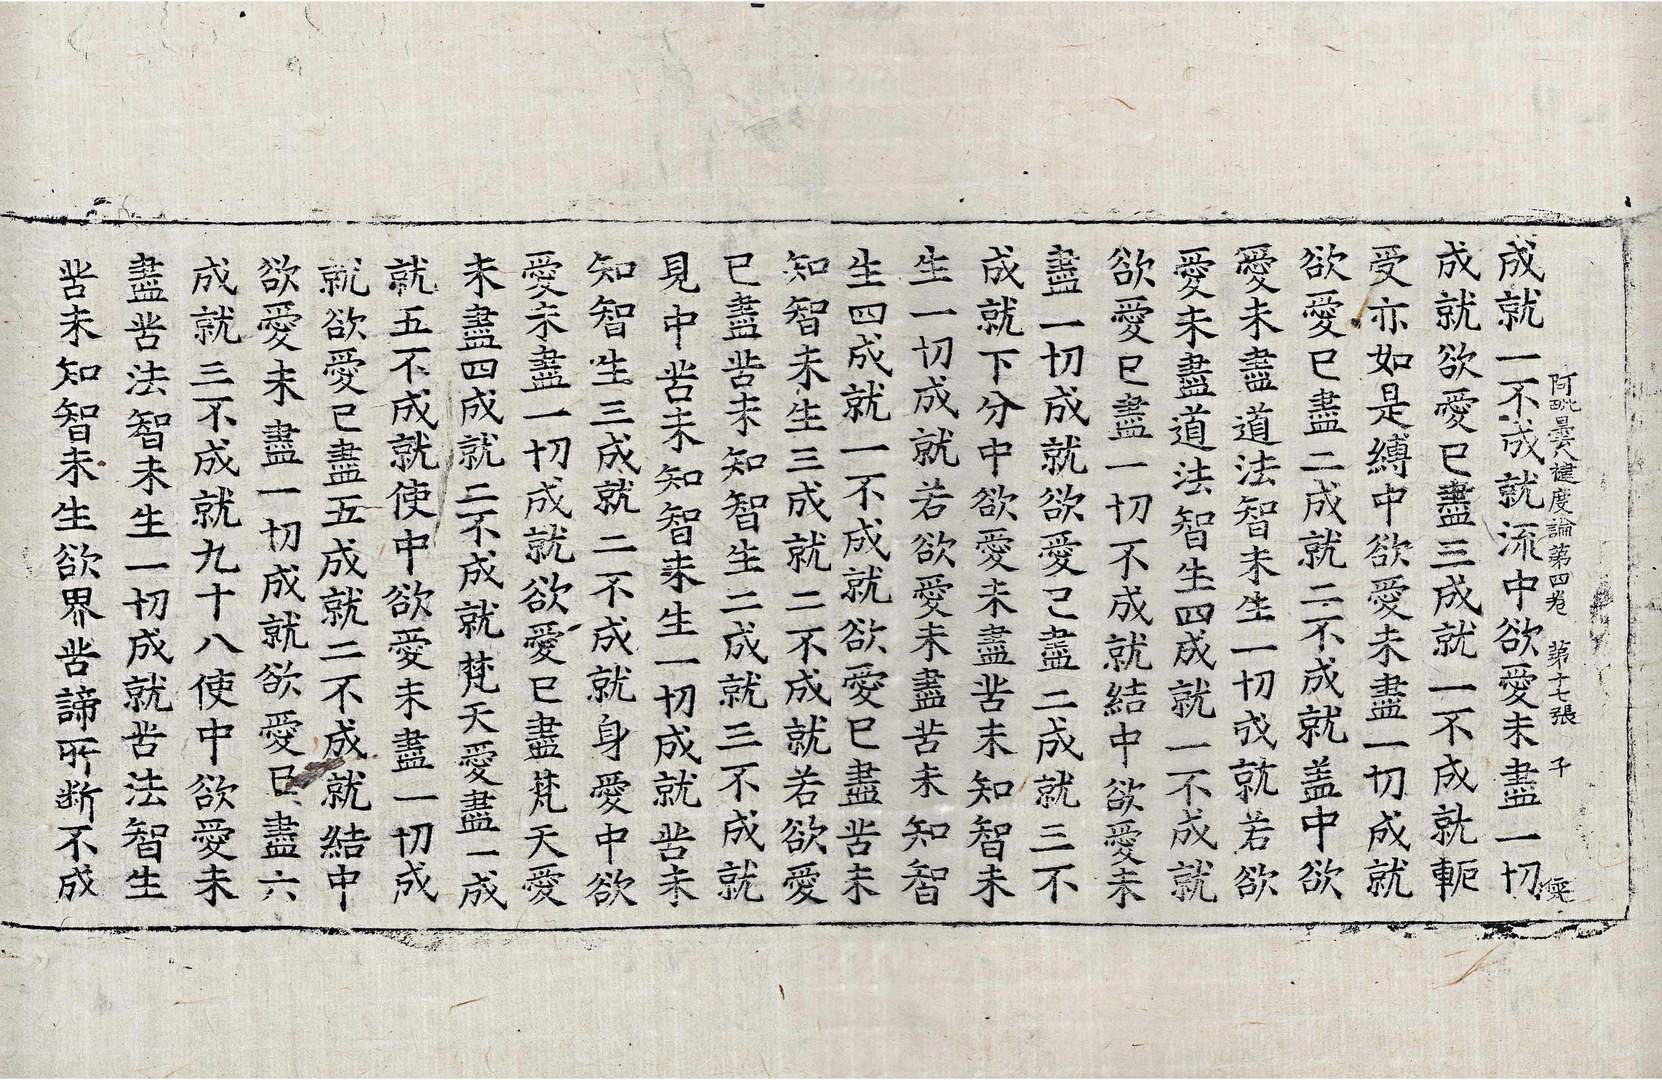 阿毗曇八犍度論第四卷 第十七張 千
成就一不成就流中欲愛未盡一切
成就欲愛已盡三成就一不成就軛
受亦如是縛中欲愛未盡一切成就
欲愛已盡二成就二不成就盖中欲
愛未盡道法智未生一切成就若欲
愛未盡道法智生四成就一不成就
欲愛已盡一切不成就結中欲愛未
盡一切成就欲愛已盡二成就三不
成就下分中欲愛未盡苦未知智未
生一切成就若欲愛未盡苦未知智
生四成就一不成就欲愛已盡苦未
知智未生三成就二不成就若欲愛
已盡苦未知智生二成就三不成就
見中苦未知智未生一切成就苦未
知智生三成就二不成就身愛中欲
愛未盡一切成就欲愛已盡梵天愛
未盡四成就二不成就梵天愛盡一成
就五不成就使中欲愛未盡一切成
就欲愛已盡五成就二不成就結中
欲愛未盡一切成就欲愛已盡六
成就三不成就九十八使中欲愛未
盡苦法智未生一切成就苦法智生
苦未知智未生欲界苦諦所斷不成